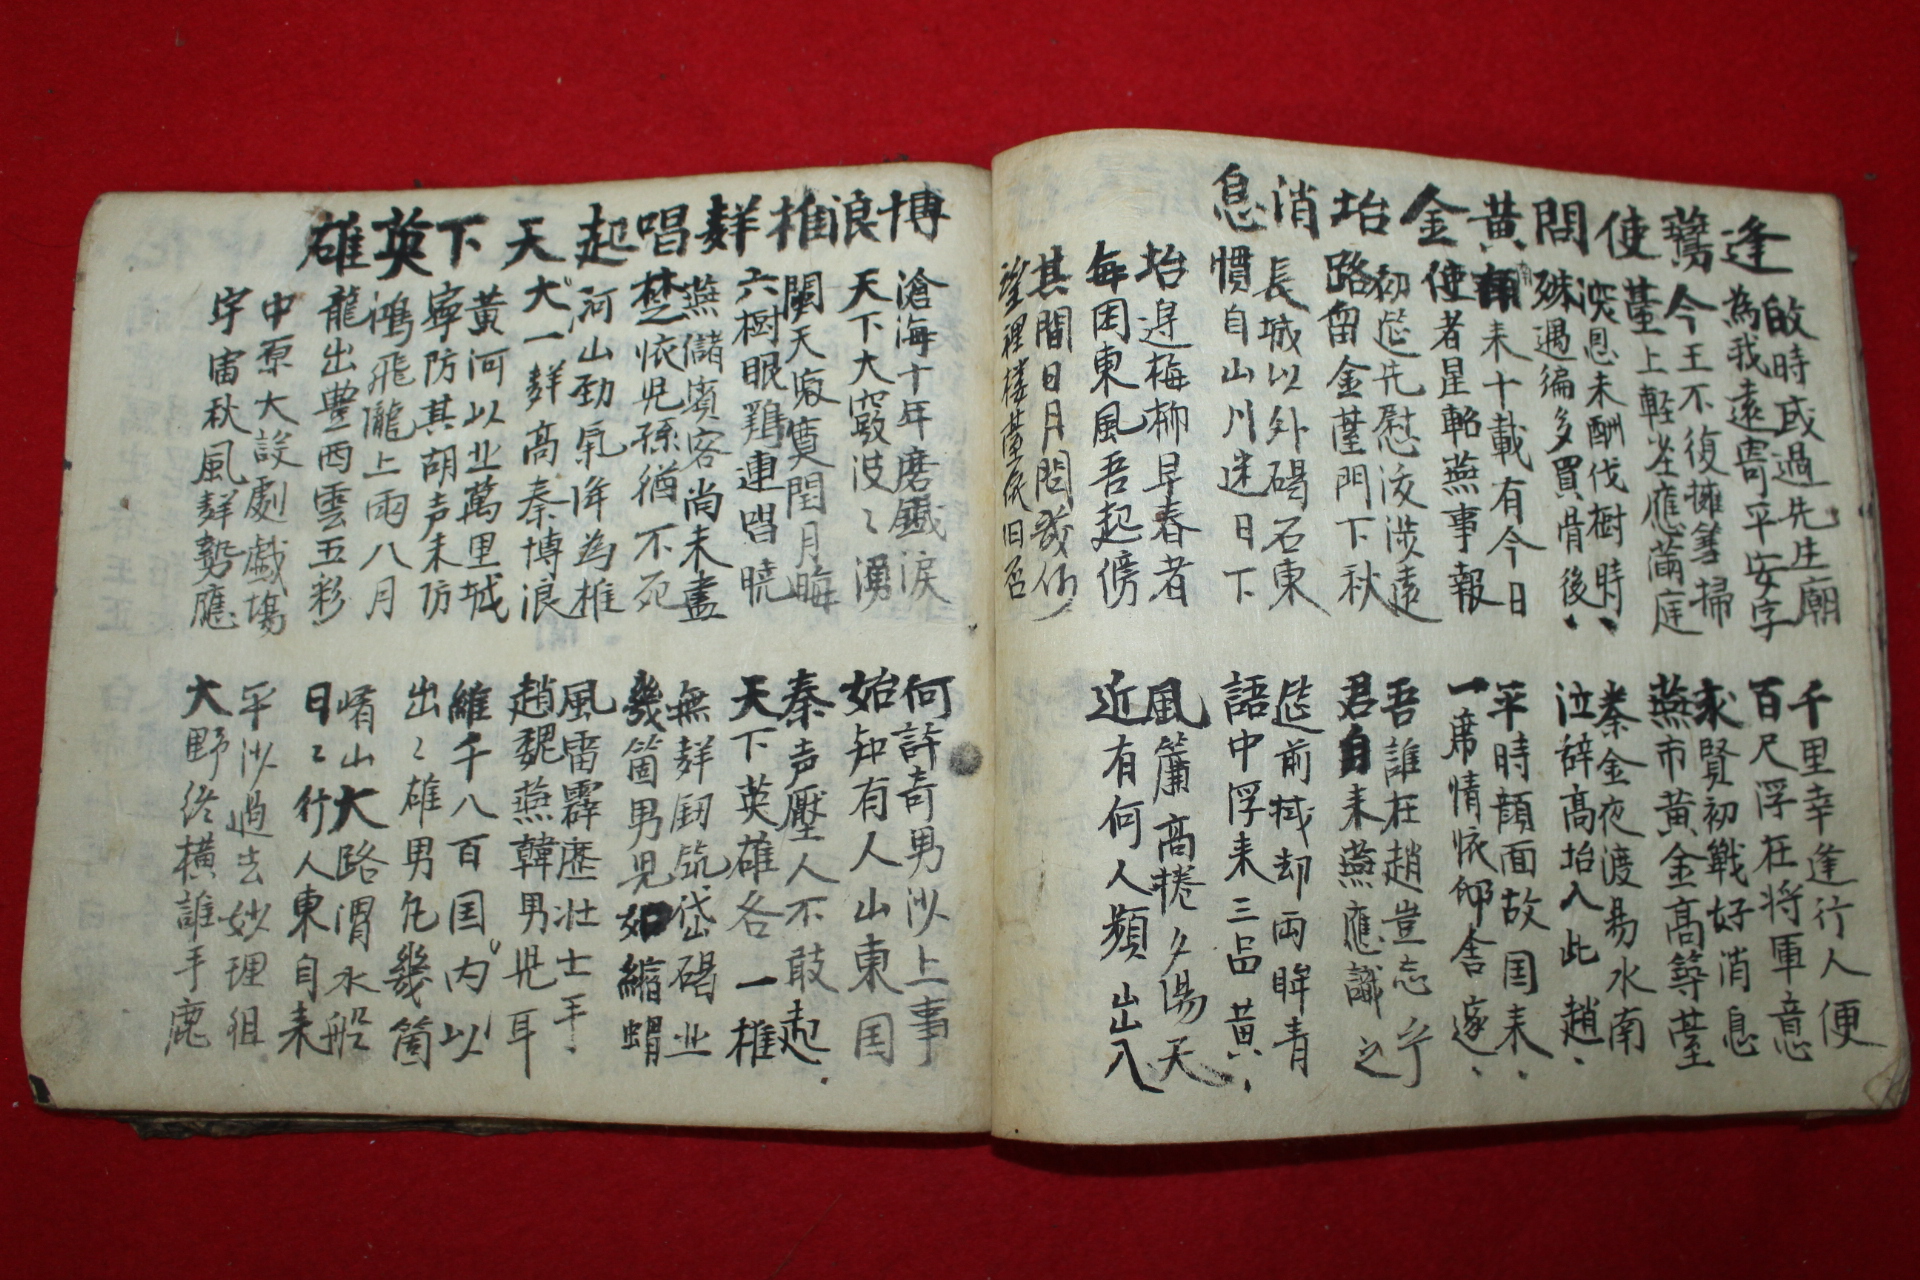 逢鷰使問黃金坮消息
啟時或過先生廟
為我遠寄平安字
今王不復擁篲掃
薹上輕塵應滿庭
深恩未酬伐樹時
殊遇徧多買骨後
来十載有今日
使者星軺燕事報
初筵先慰涉遠
路留金薹門下秋
長城以外碣石東
慣自山川迷日下
坮邊梅柳早春者
每因東風吾起傍
其間日月問幾何
望裡楼薹依旧否
千里幸逢行人便
百尺浮在将軍意
求賢初戰好消息
燕市黃金高等薹
秦金夜渡易水南
泣辞高坮入此趙
平時顔面故国来
一席情依仰舍遂
吾誰在趙豈忘乎
君自来燕應識之
筵前拭却両眸青
語中浮来三品黄
風簾高捲夕陽天
近有何人頻出入
博浪椎聲唱起天下英雄
滄海十年磨鐵淚
天下大器波〻湧
天寂寞閏月晦
六樹眼鶏連唱暁
燕儲賓客尚未盡
楚依児孫猶不死
河山勁氣降為椎
一聲高秦博浪
黃河以北萬里城
寧防其胡声未防
鴻飛瀧上雨八月
龍出豊西雲五彩
中原大設劇戱塲
宇宙秋風聲勢應
何許奇男沙上事
始知有人山東国
秦声壓人不敢起
天下英雄各一椎
無聲釰筑岱碣北
幾箇男児如縮蝟
風雷霹歷壮士手
趙魏燕韓男児耳
維千八百国内以
出〻雄男凡幾箇
崤山大路渭水船
日〻行人東自来
平沙過去妙理狙
大野縱橫誰手鹿